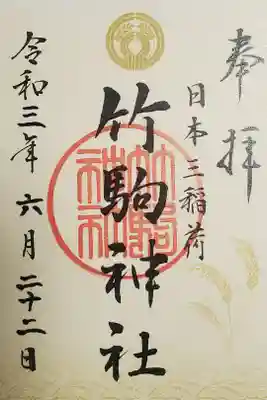 奉拝
日本三稲荷
竹駒神社
令和三年六月二十二日